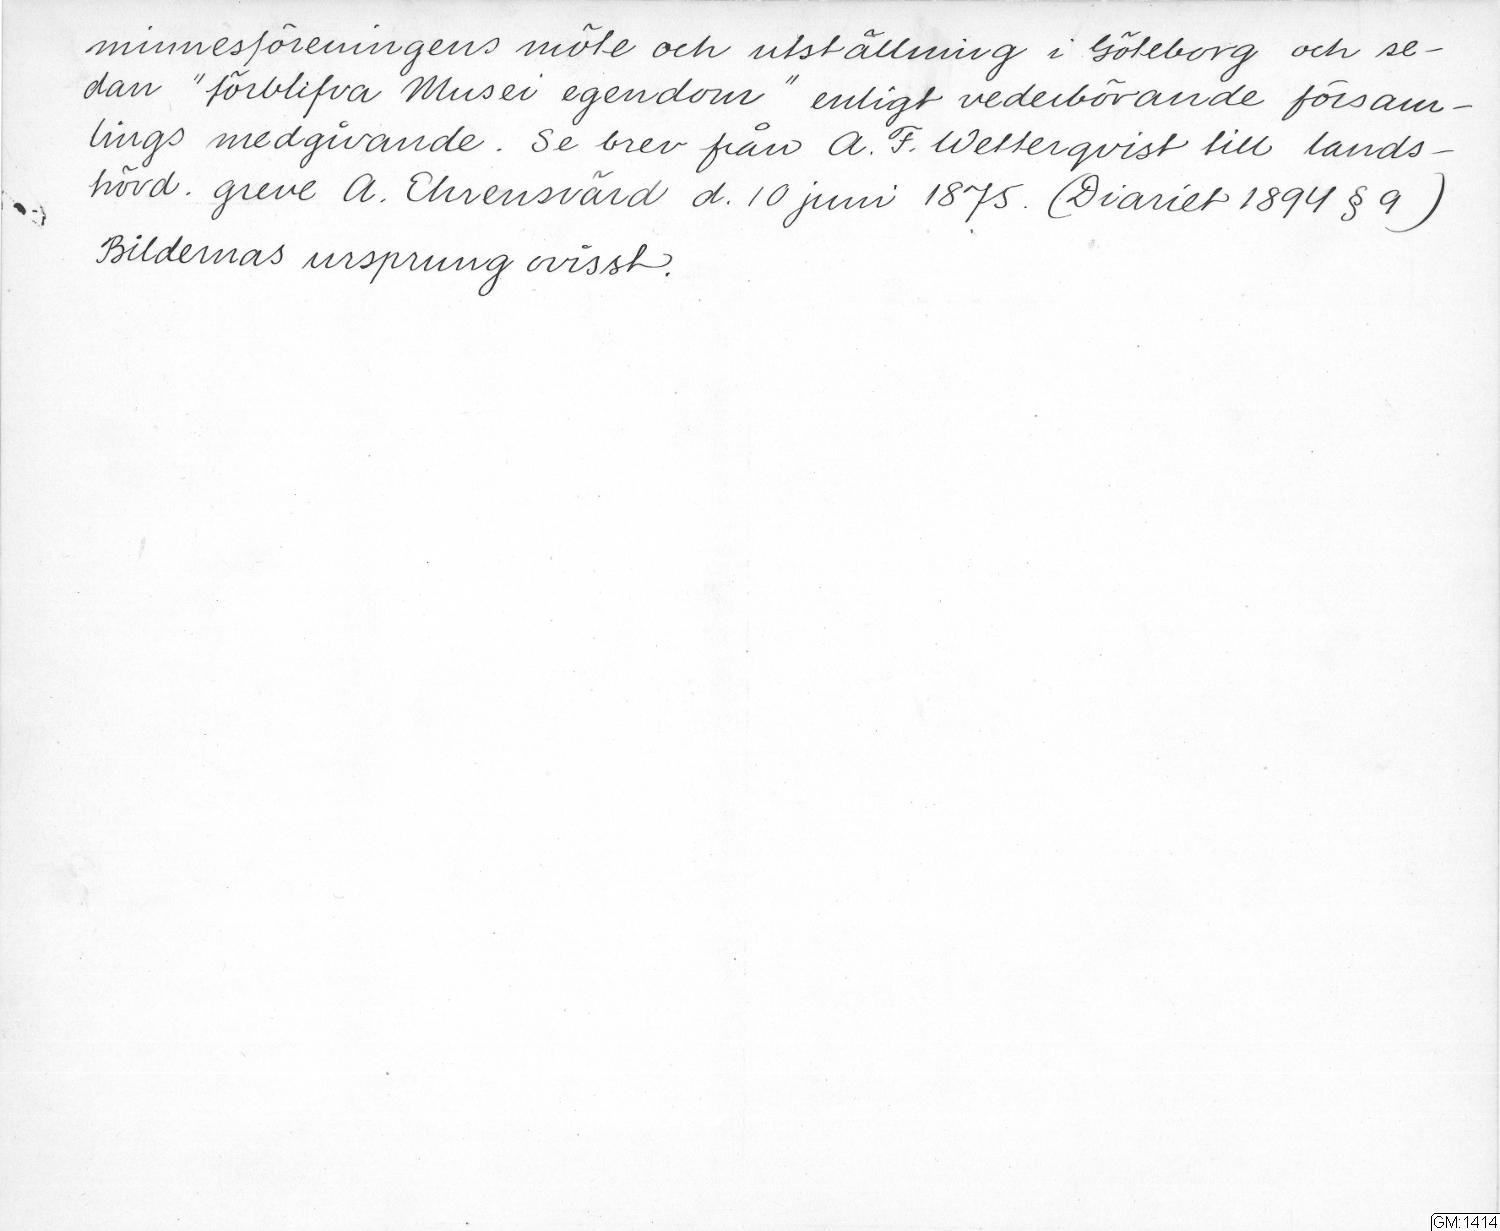 minnesföreningens möte och utställning i Göteborg och se-
dan "förblifva Musei egendom" enligt vederbörande försam-
lings medgivande. Se brev från A. F. Wetterqvist till lands-
hövd. greve A. Ehrensvärd d. 10 juni 1875. (Diariet 1894 § 9)
Bildernas ursprung ovisst.
GM:1414